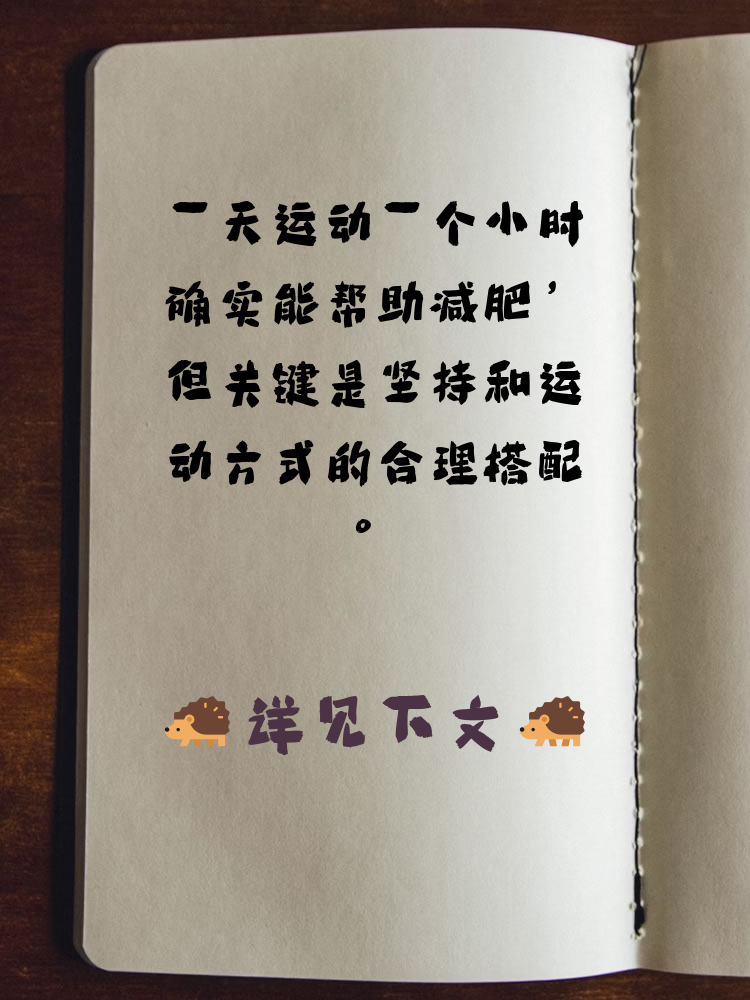 一天运动一个小时
确实能帮助减肥，
但关键是坚持和运
动方式的合理搭配
。
🦔详见下文🦔